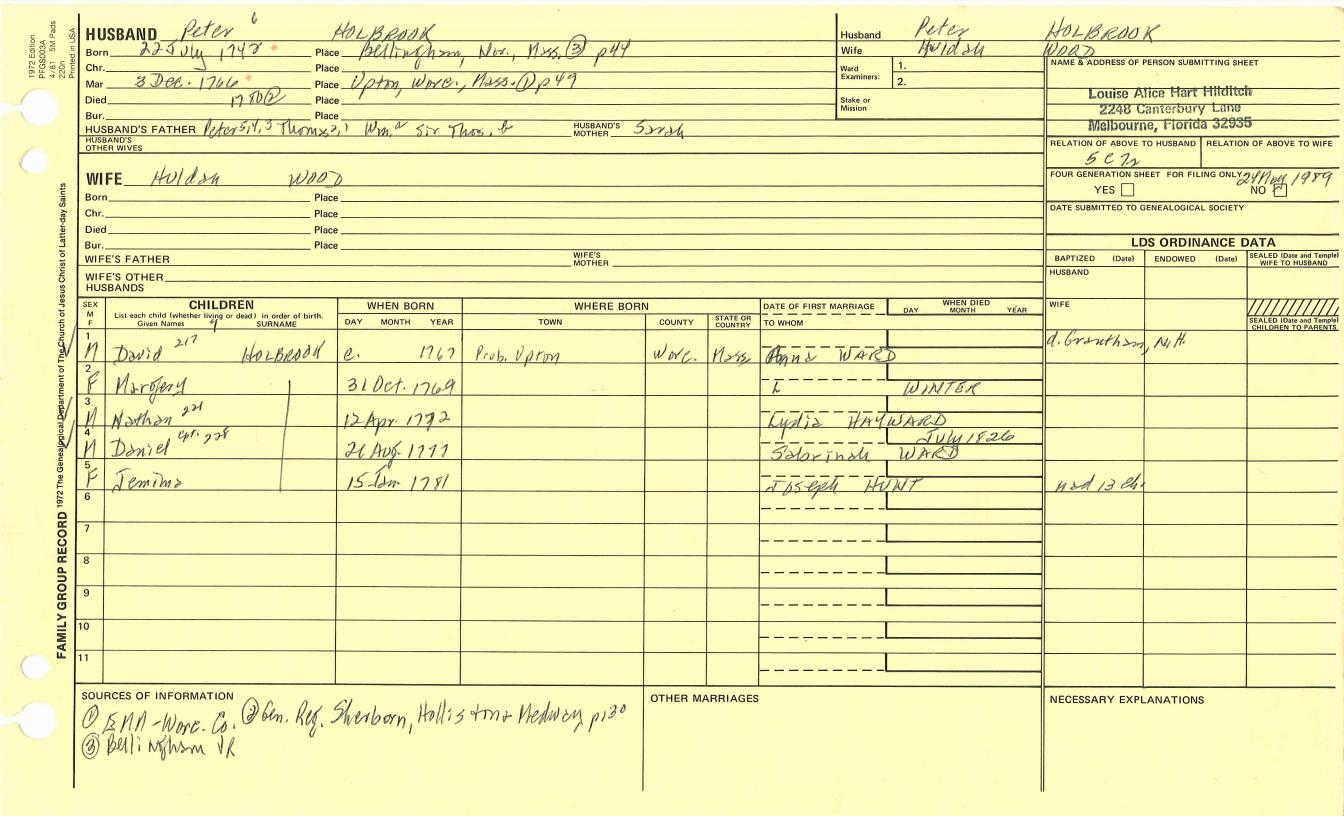 1972 Edition
PFGS003A
4/81 5M Pads
220n
Printed in USA
FAMILY GROUP RECORD 1972 The Genealogical Department of The Church of Jesus Christ of Latter-day Saints
HUSBAND Peter 6 HOLBROOK
Born 22 July Place Bellingham, Nor., Mass. ③ p44
Chr. Place
Mar 3 Dec. 1766 Place Upton, Worc., Mass. ① p49
Died 1780 ② Place
Bur. Place
HUSBAND'S FATHER Peter 5,4,3 Thomas 2,1 Wm. a Sir Thos. b HUSBAND'S MOTHER Sarah
HUSBAND'S OTHER WIVES
WIFE Huldah WOOD
Born Place
Chr. Place
Died Place
Bur. Place
WIFE'S FATHER WIFE'S MOTHER
WIFE'S OTHER HUSBANDS
Husband Peter HOLBROOK
Wife Huldah WOOD
Ward Examiners: 1.
2.
Stake or Mission
NAME & ADDRESS OF PERSON SUBMITTING SHEET
Louise Alice Hart Hilditch
2248 Canterbury Lane
Melbourne, Florida 32935
RELATION OF ABOVE TO HUSBAND RELATION OF ABOVE TO WIFE
5 C
FOUR GENERATION SHEET FOR FILING ONLY 1989
YES NO
DATE SUBMITTED TO GENEALOGICAL SOCIETY
LDS ORDINANCE DATA
BAPTIZED (Date) ENDOWED (Date) SEALED (Date and Temple) WIFE TO HUSBAND
HUSBAND
WIFE
SEALED (Date and Temple) CHILDREN TO PARENTS
SEX M F CHILDREN WHEN BORN WHERE BORN DATE OF FIRST MARRIAGE WHEN DIED
List each child (whether living or dead) in order of birth. DAY MONTH YEAR
Given Names SURNAME DAY MONTH YEAR TOWN COUNTY STATE OR COUNTRY TO WHOM
1 M David 217 HOLBROOK c. 1767 Prob. Upton Worc. Mass Anna WARD d. Grantham, N.H.
2 F Margery 31 Oct. 1769 L WINTER
3 M Nathan 221 12 Apr. 1772 Lydia HAYWARD
4 M Daniel Cpt. 228 26 Aug. 1777 July 1826 Sabrinah WARD
5 F Jemima 15 Jan 1781 Joseph HUNT had 13 ch.
6
7
8
9
10
11
SOURCES OF INFORMATION
① - Worc. Co. ② Gen. Reg. Sherborn, Holliston & Medway p130
③ Bellingham VR
OTHER MARRIAGES
NECESSARY EXPLANATIONS